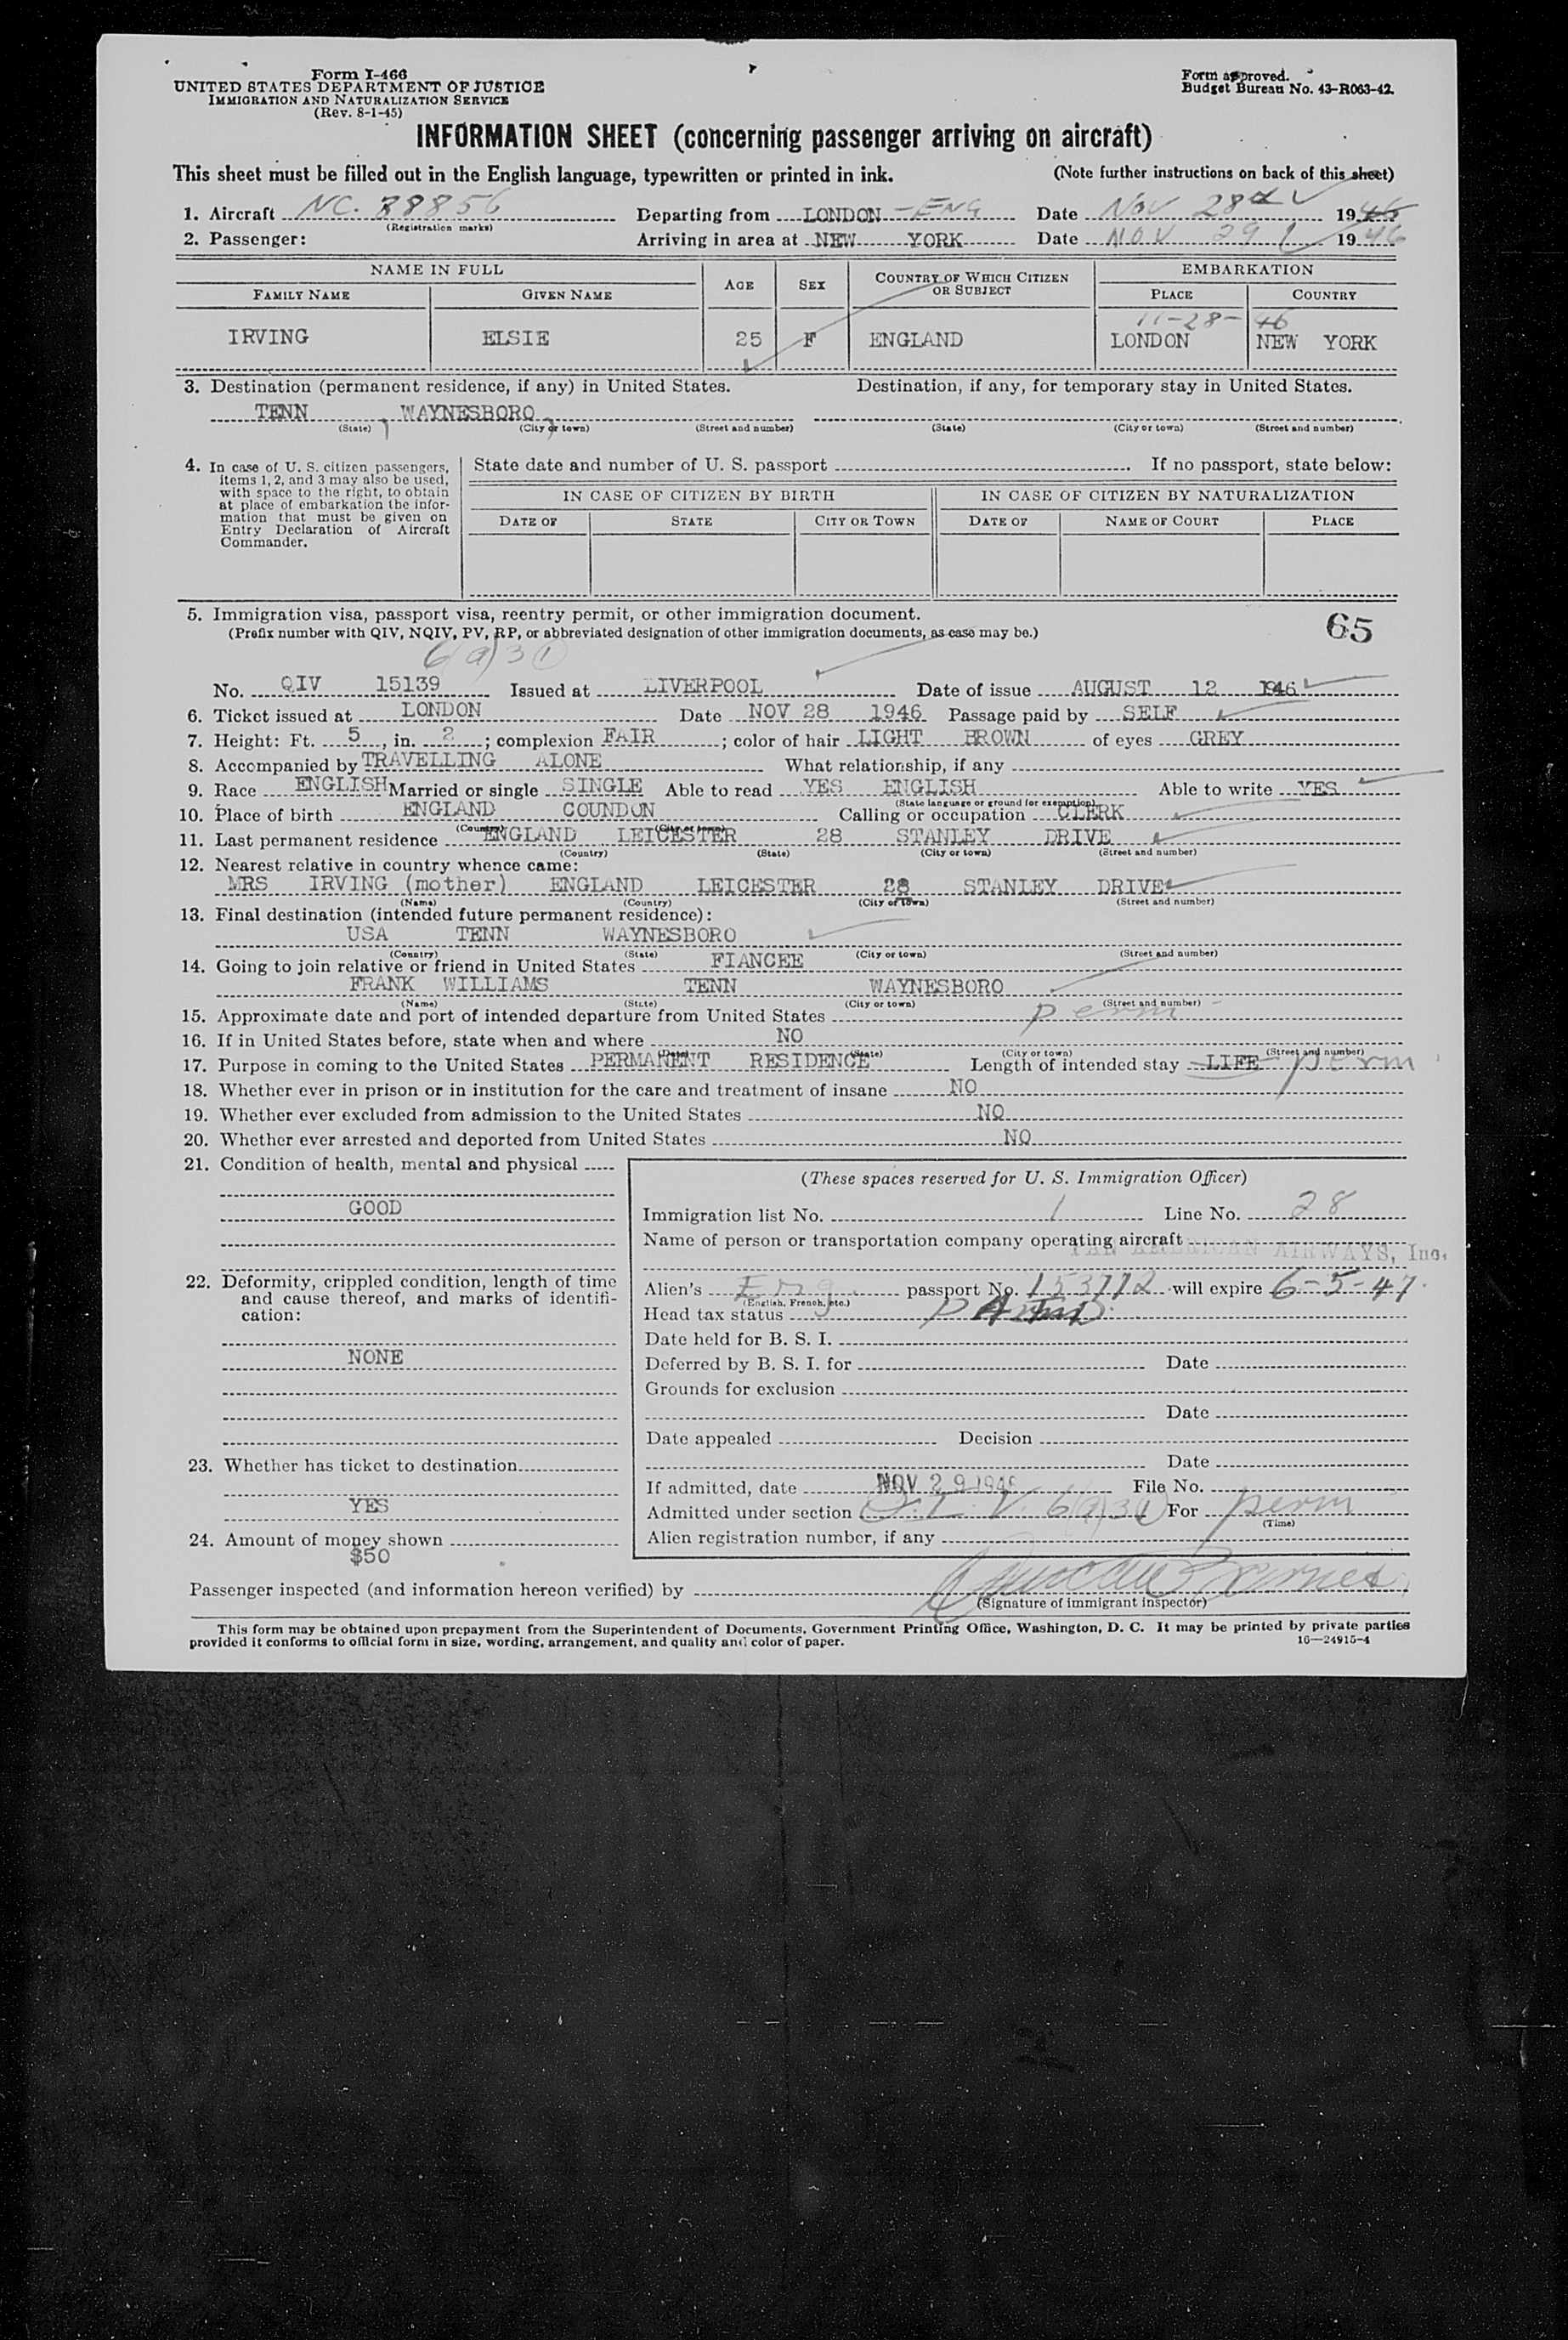 Form I-466
UNITED STATES DEPARTMENT OF JUSTICE
IMMIGRATION AND NATURALIZATION SERVICE
(Rev. 8-1-45)
Form approved.
Budget Bureau No. 43-R063-42.
INFORMATION SHEET (concerning passenger arriving on aircraft)
This sheet must be filled out in the English language, typewritten or printed in ink. (Note further instructions on back of this sheet)
1. Aircraft NC. 88856 Departing from LONDON - ENG Date NOV 28 1946
(Registration marks)
2. Passenger: Arriving in area at NEW YORK Date NOV 29 1946
NAME IN FULL AGE SEX COUNTRY OF WHICH CITIZEN OR SUBJECT EMBARKATION
FAMILY NAME GIVEN NAME PLACE COUNTRY
11-28-46
IRVING ELSIE 25 F ENGLAND LONDON NEW YORK
3. Destination (permanent residence, if any) in United States. Destination, if any, for temporary stay in United States.
TENN, WAYNESBORO,
(State) (City or town) (Street and number) (State) (City or town) (Street and number)
4. In case of U. S. citizen passengers, items 1, 2, and 3 may also be used, with space to the right, to obtain at place of embarkation the information that must be given on Entry Declaration of Aircraft Commander.
State date and number of U. S. passport If no passport, state below:
IN CASE OF CITIZEN BY BIRTH IN CASE OF CITIZEN BY NATURALIZATION
DATE OF STATE CITY OR TOWN DATE OF NAME OF COURT PLACE
5. Immigration visa, passport visa, reentry permit, or other immigration document.
(Prefix number with QIV, NQIV, PV, RP, or abbreviated designation of other immigration documents, as case may be.)
65
6(a)3(1)
No. QIV 15139 Issued at LIVERPOOL Date of issue AUGUST 12 1946
6. Ticket issued at LONDON Date NOV 28 1946 Passage paid by SELF
7. Height: Ft. 5, in. 2; complexion FAIR; color of hair LIGHT BROWN of eyes GREY
8. Accompanied by TRAVELLING ALONE What relationship, if any
9. Race ENGLISH Married or single SINGLE Able to read YES ENGLISH Able to write YES
(State language or ground for exemption)
10. Place of birth ENGLAND COUNDON Calling or occupation CLERK
(Country) (City or town)
11. Last permanent residence ENGLAND LEICESTER 28 STANLEY DRIVE
(Country) (State) (City or town) (Street and number)
12. Nearest relative in country whence came:
MRS IRVING (mother) ENGLAND LEICESTER 28 STANLEY DRIVE
(Name) (Country) (City or town) (Street and number)
13. Final destination (intended future permanent residence):
USA TENN WAYNESBORO
(Country) (State) (City or town) (Street and number)
14. Going to join relative or friend in United States FIANCEE
FRANK WILLIAMS TENN WAYNESBORO
(Name) (State) (City or town) (Street and number)
15. Approximate date and port of intended departure from United States perm
16. If in United States before, state when and where NO
(Date) (State) (City or town) (Street and number)
17. Purpose in coming to the United States PERMANENT RESIDENCE Length of intended stay LIFE perm
18. Whether ever in prison or in institution for the care and treatment of insane NO
19. Whether ever excluded from admission to the United States NO
20. Whether ever arrested and deported from United States NO
21. Condition of health, mental and physical
GOOD
22. Deformity, crippled condition, length of time and cause thereof, and marks of identification:
NONE
23. Whether has ticket to destination
YES
24. Amount of money shown
$50
(These spaces reserved for U. S. Immigration Officer)
Immigration list No. 1 Line No. 28
Name of person or transportation company operating aircraft
PAN AMERICAN AIRWAYS, Inc.
Alien's Eng. passport No. 153712 will expire 6-5-47.
(English, French, etc.)
Head tax status
Date held for B. S. I.
Deferred by B. S. I. for Date
Grounds for exclusion
Date
Date appealed Decision
Date
If admitted, date NOV 29 1946 File No.
Admitted under section Q.I.V. 6(a)3(1) For perm
(Time)
Alien registration number, if any
Passenger inspected (and information hereon verified) by
(Signature of immigrant inspector)
This form may be obtained upon prepayment from the Superintendent of Documents, Government Printing Office, Washington, D. C. It may be printed by private parties
provided it conforms to official form in size, wording, arrangement, and quality and color of paper. 16—24915-4